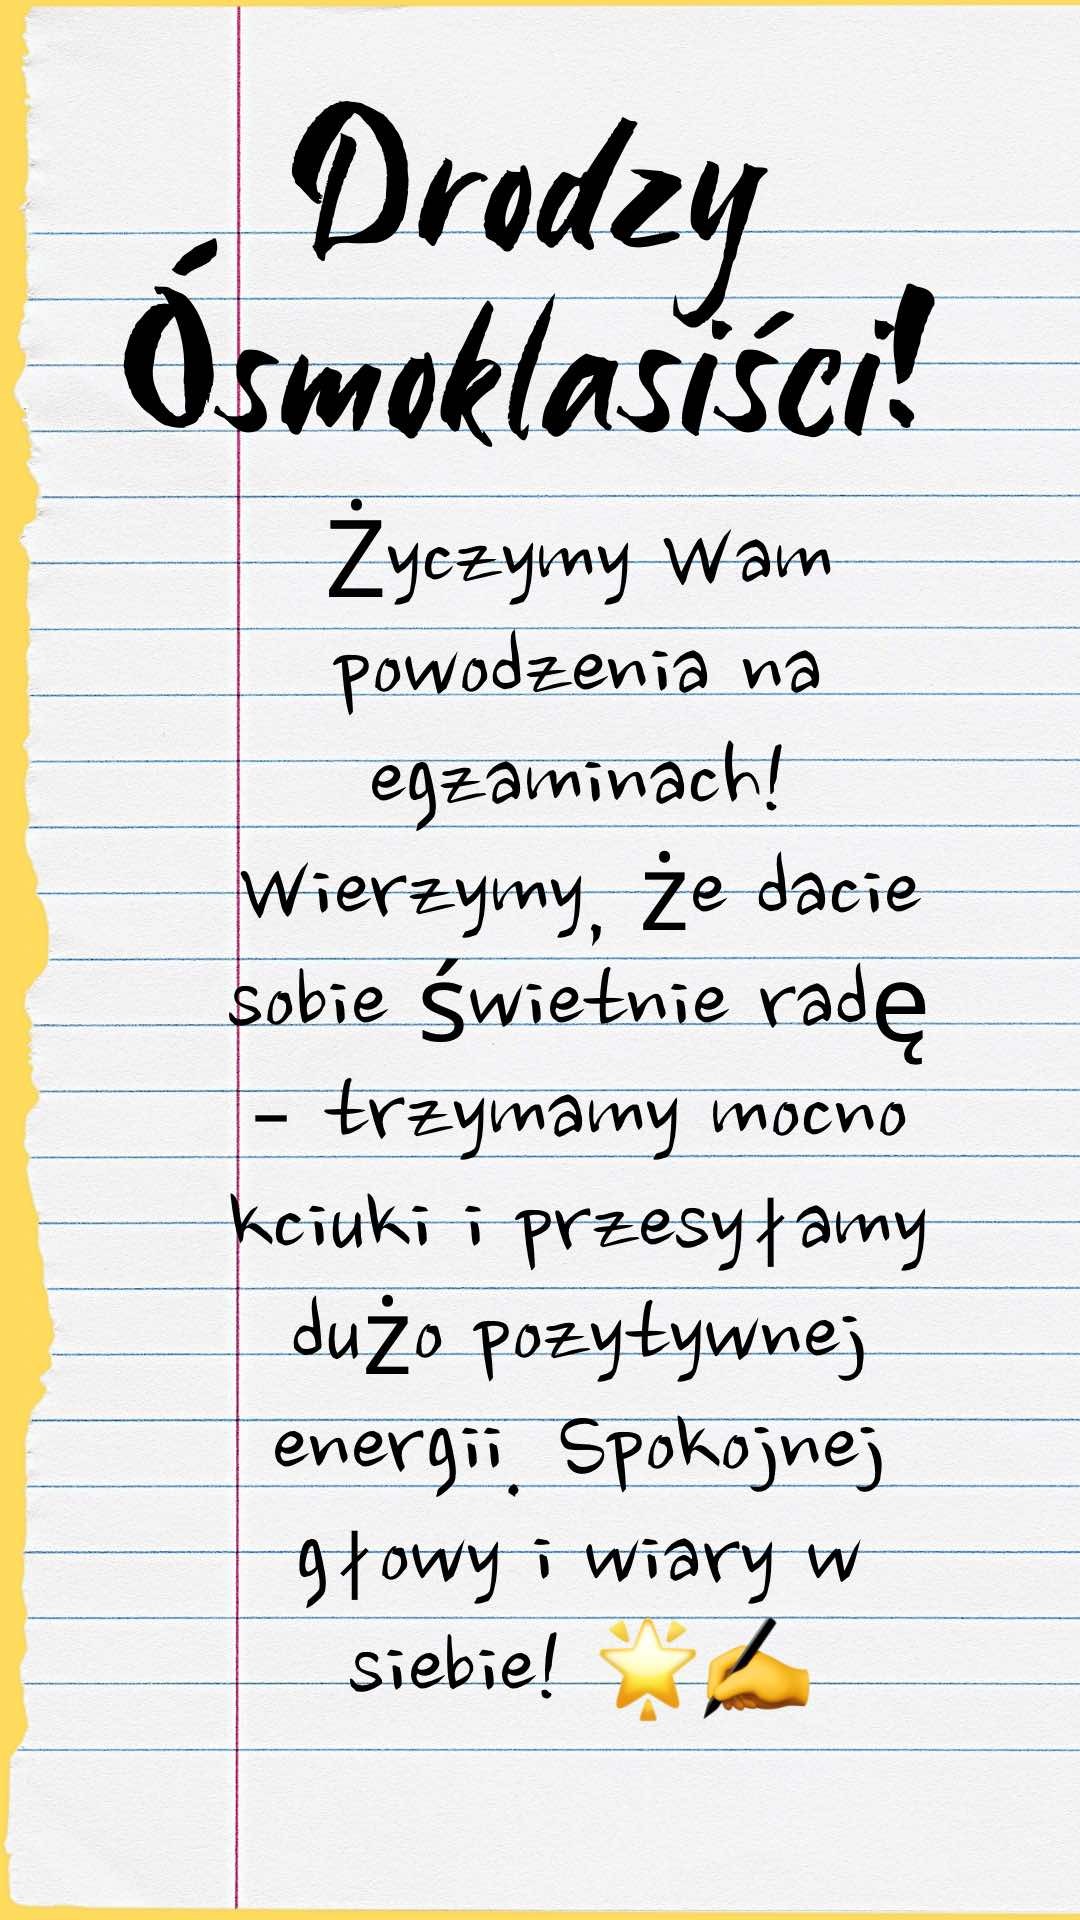 Drodzy
Ósmoklasiści!
Życzymy Wam
powodzenia na
egzaminach!
Wierzymy, że dacie
sobie świetnie radę
– trzymamy mocno
kciuki i przesyłamy
dużo pozytywnej
energii. Spokojnej
głowy i wiary w
siebie! 🌟✍️